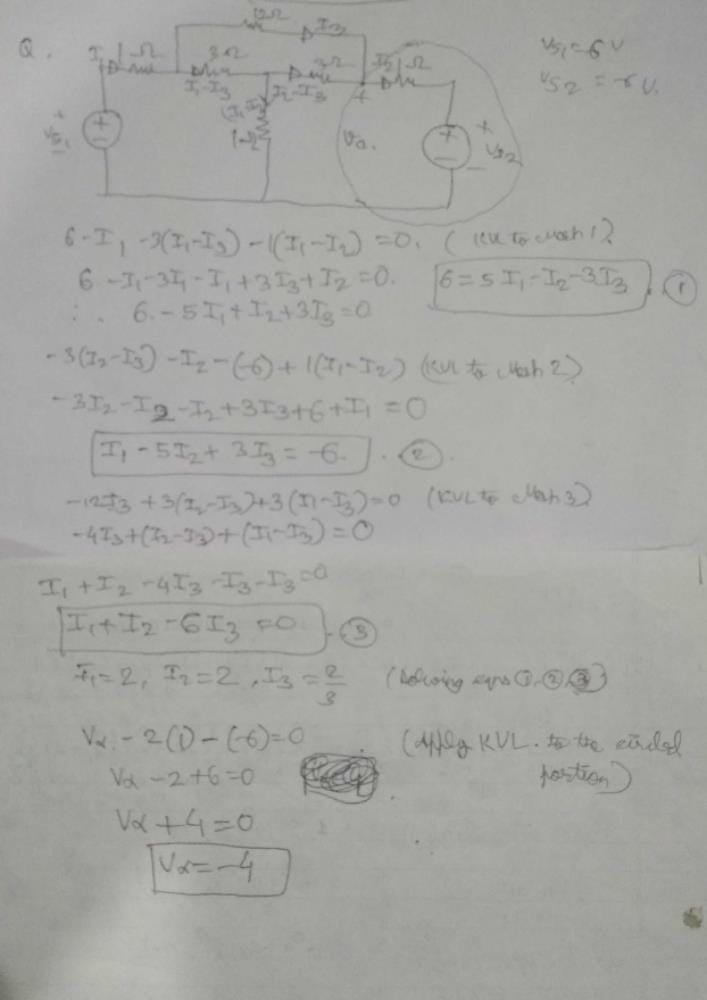 Q.
12Ω I3
I1 1Ω 3Ω 3Ω I2 1Ω
I1-I3 I2-I3
(I1-I2)
1Ω
+ Vα.
+ VS1 -
+ VS2 -
VS1 = 6 V
VS2 = -6 V.
6 - I1 - 3(I1-I3) - 1(I1-I2) = 0. (KVL to Mesh 1).
6 - I1 - 3I1 - I1 + 3I3 + I2 = 0. 6 = 5I1 - I2 - 3I3 . ①
∴ 6 - 5I1 + I2 + 3I3 = 0
-3(I2-I3) - I2 - (-6) + 1(I1-I2) (KVL to Mesh 2)
-3I2 - I2 - I2 + 3I3 + 6 + I1 = 0
I1 - 5I2 + 3I3 = -6. . ②.
-12I3 + 3(I2-I3) + 3(I1-I3) = 0 (KVL to Mesh 3)
-4I3 + (I2-I3) + (I1-I3) = 0
I1 + I2 - 4I3 - I3 - I3 = 0
I1 + I2 - 6I3 = 0. . ③
I1 = 2, I2 = 2, I3 = 2/3 (Solving eqns ①, ②, ③)
Vα - 2(1) - (-6) = 0 (Apply KVL. to the circled
portion)
Vα - 2 + 6 = 0
Vα + 4 = 0
Vα = -4